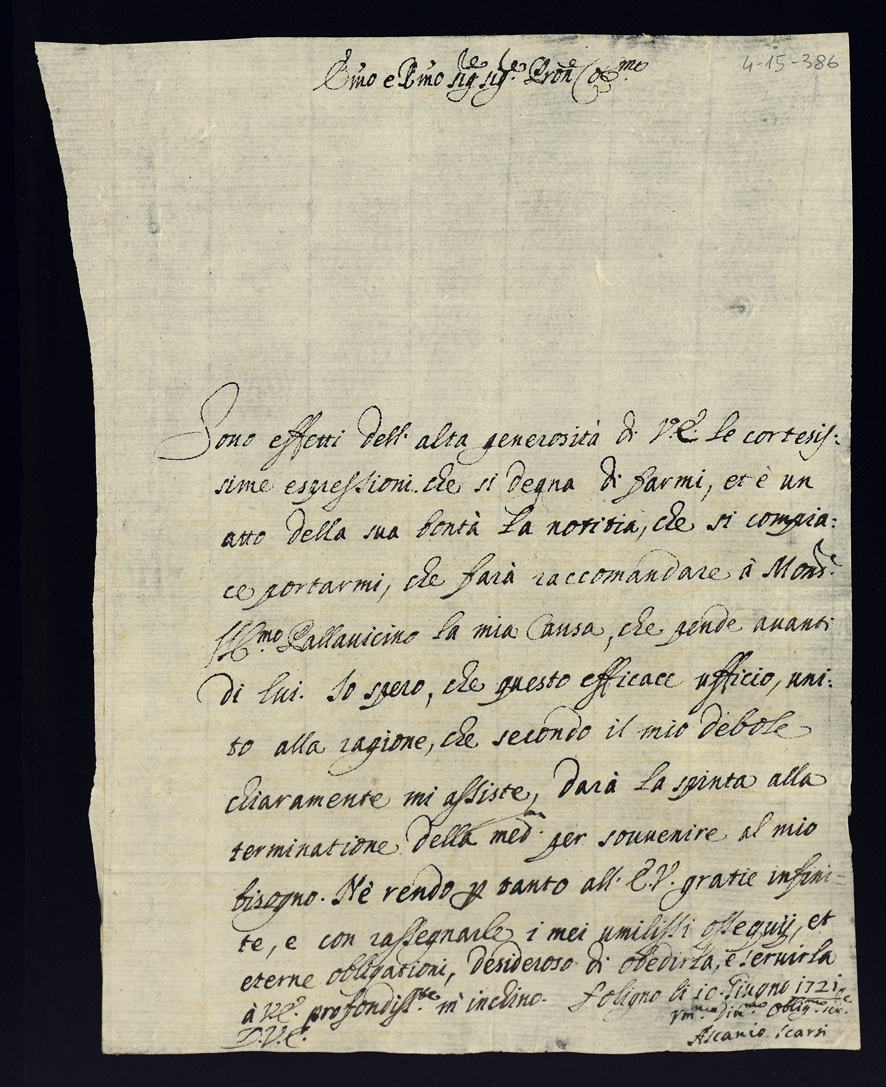 4-15-386
Emo e Rmo Sigre Sigre Prone Colmo
Sono effetti dell'alta generosità di V.E. le cortesis:
sime espressioni che si degna di farmi, et è un
atto della sua bontà la notitia, che si compia:
ce portarmi, che farà raccomandare à Monsr
Illmo Pallavicino la mia Causa, che pende avanti
di lui. Io spero, che questo efficace ufficio, uni:
to alla ragione, che secondo il mio debole
chiaramente mi assiste, darà la spinta alla
terminatione della medma per souvenire al mio
bisogno. Nè rendo p tanto all'E.V. gratie infini=
te, e con rassegnarle i mei umilissi ossequij, et
eterne obligationi, desideroso di obedirla, e seruirla
à V.E. profondisste m'inchino. Foligno li 10 Giugno 1721
D.V.E.
Vmo Divmo Obligmo sere
Ascanio Scarsi